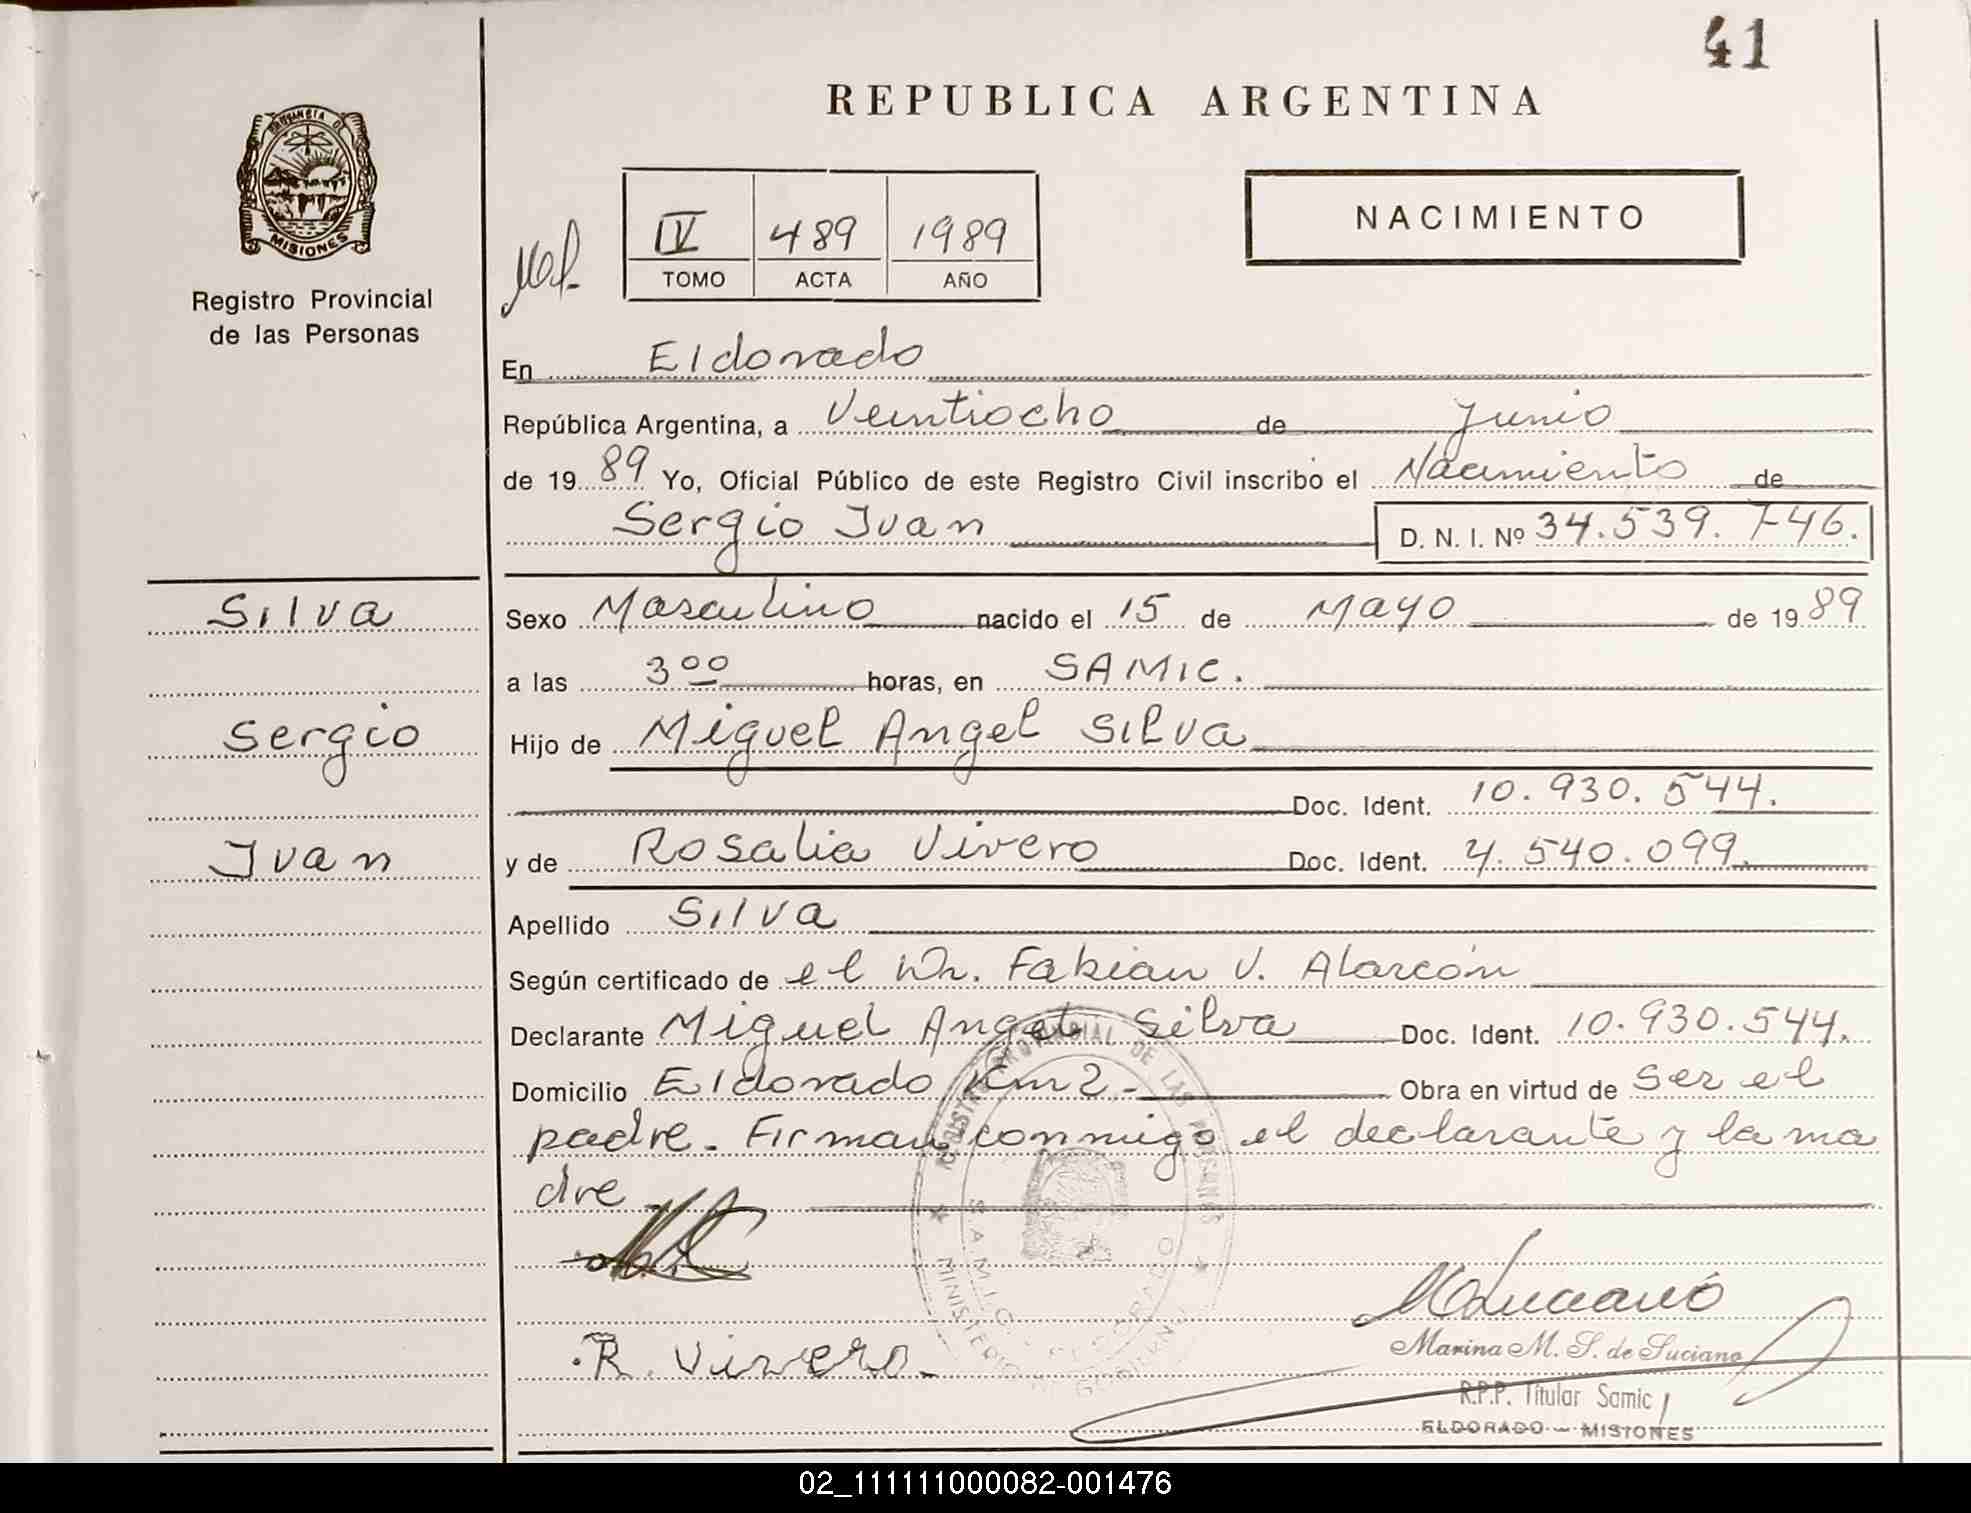 41
REPUBLICA ARGENTINA
PROVINCIA DE
MISIONES
Registro Provincial
de las Personas
IV 489 1989
TOMO ACTA AÑO
NACIMIENTO
En Eldorado
República Argentina, a Veintiocho de Junio
de 19 89 Yo, Oficial Público de este Registro Civil inscribo el Nacimiento de
Sergio Ivan D. N. I. Nº 34.539.746.
Silva
Sexo Masculino nacido el 15 de Mayo de 19 89
a las 3 00 horas, en SAMIC.
Sergio
Hijo de Miguel Angel Silva
Doc. Ident. 10.930.544.
Ivan
y de Rosalia Vivero Doc. Ident. 4.540.099.
Apellido Silva
Según certificado de el Dr. Fabian V. Alarcón
Declarante Miguel Angel Silva Doc. Ident. 10.930.544.
Domicilio Eldorado Km 2.- Obra en virtud de ser el
padre. Firman conmigo el declarante y la ma
dre
REGISTRO PROVINCIAL DE LAS PERSONAS
S.A.M.I.C. - ELDORADO
MINISTERIO DE GOBIERNO
R. Vivero.
Marina M. S. de Luciano
R.P.P. Titular Samic
ELDORADO - MISIONES
02_111111000082-001476